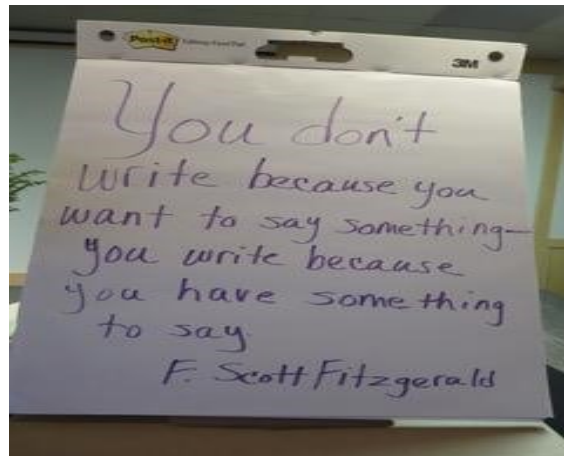 Post-it
3M
You don't
write because you
want to say something—
you write because
you have something
to say
F. Scott Fitzgerald